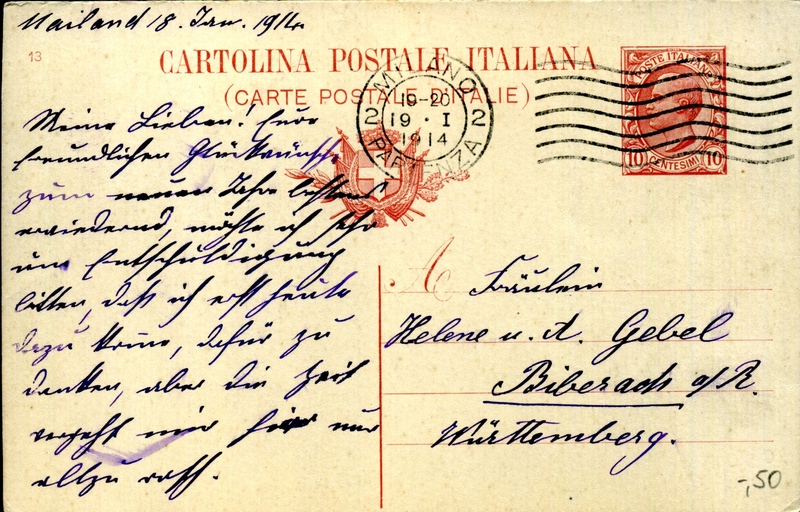 Mailand 18. Jan. 1914.
13
CARTOLINA POSTALE ITALIANA
(CARTE POSTALE D'ITALIE)
MILANO
19-20
2 19 · I 2
1914
PARTENZA
POSTE ITALIANE
10 CENTESIMI 10
Meine Lieben! Eure
freundlichen Glückwünsche
zum neuen Jahr bestens
erwiedernd, möchte ich sehr
um Entschuldigung
bitten, daß ich erst heute
dazu komme, dafür zu
danken, aber die Zeit
vergeht mir hier nur
allzu rasch.
A
Fräulein
Helene u. A. Gebel
Biberach a/R.
Württemberg.
-,50